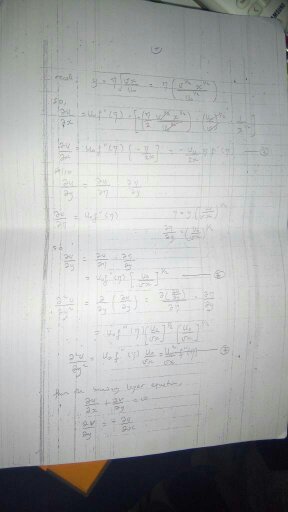 recall y = η √(νx/U₀) = η (ν^½ x^½ / U₀^½)
So,
∂u/∂x = U₀ f''(η)
∂u/∂x = U₀ f''(η) (-η/2x) = - U₀/2x η f''(η)
Also
∂u/∂y = ∂u/∂η · ∂η/∂y
∂u/∂η = U₀ f''(η) η = y (U₀/νx)^½
∂η/∂y = (U₀/νx)^½
So
∂u/∂y = ∂u/∂η · ∂η/∂y
= U₀ f''(η) [U₀/νx]^½
∂²u/∂y² = ∂/∂y (∂u/∂y) = ∂(∂u/∂y)/∂η · ∂η/∂y
= U₀ f'''(η) [U₀/νx]^½ [U₀/νx]^½
∂²u/∂y² = U₀ f'''(η) U₀/νx = U₀²/νx f'''(η)
from the boundary layer equation
∂u/∂x + ∂v/∂y = 0
∂v/∂y = - ∂u/∂x